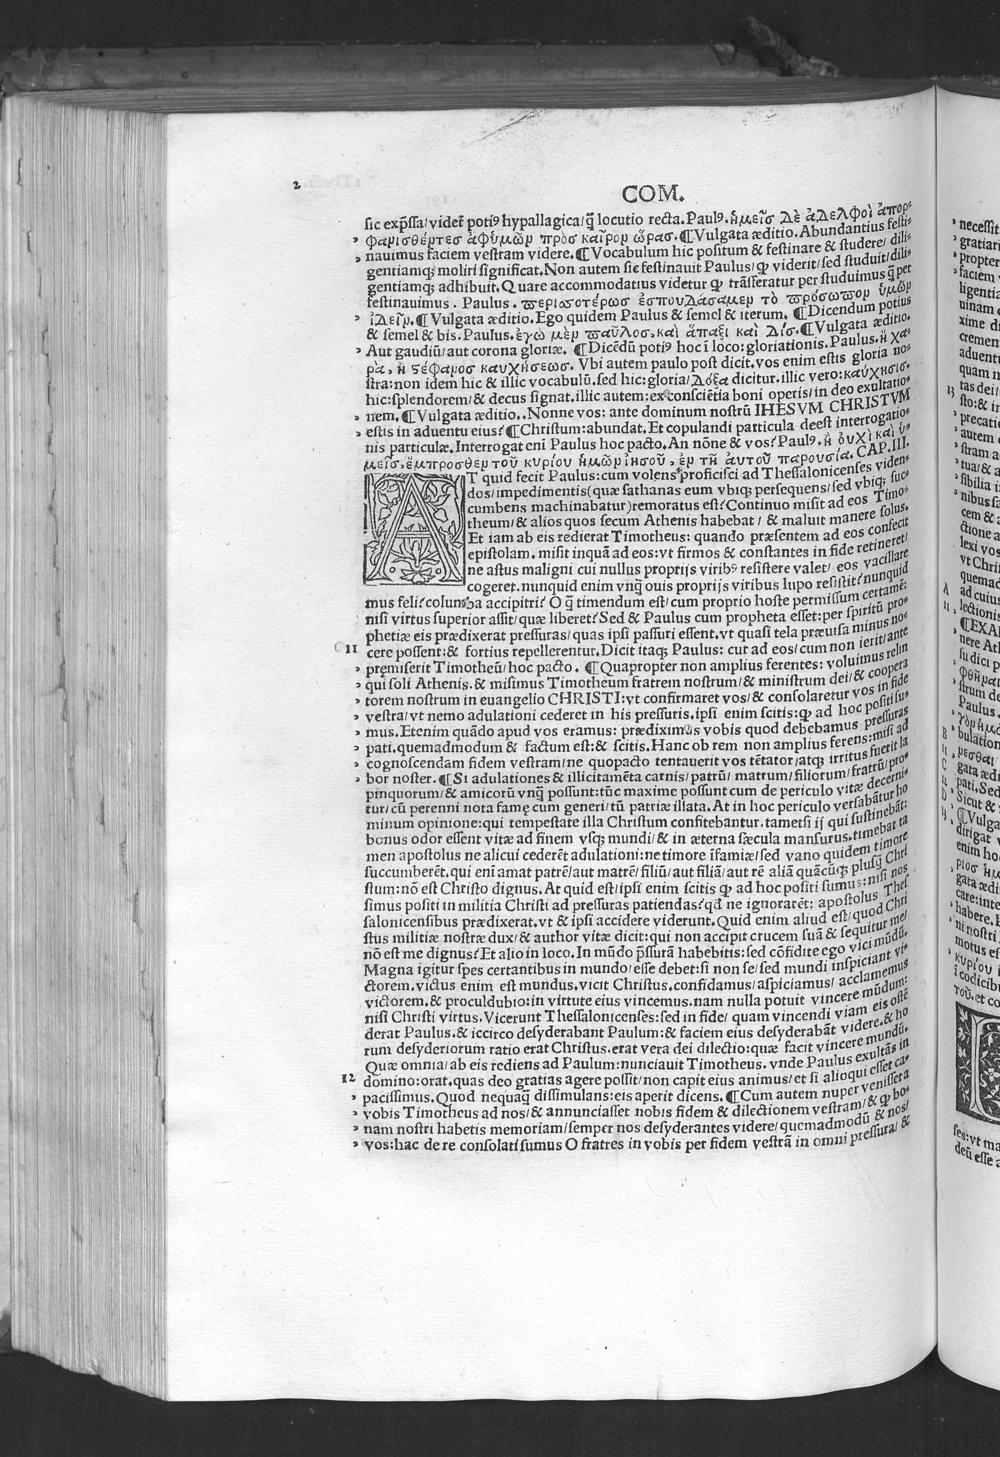 2
COM.
sic exp̄ssa/videt̄ poti⁹ hypallagica/q̄ locutio recta. Paul⁹. ἡμεῖσ δὲ ἀδελφοὶ ἀπορ-
φανισθέντεσ ἀφ᾽ὑμῶν πρὸσ καῖρον ὥρασ. ¶ Vulgata æditio. Abundantius festi-
nauimus faciem vestram videre. ¶ Vocabulum hic positum & festinare & studere/ dili-
gentiamq; moliri significat. Non autem sic festinauit Paulus/ ꝙ viderit/ sed studuit/ dili-
gentiamq; adhibuit. Quare accommodatius videtur ꝙ trāsferatur per studuimus q̄ per
festinauimus . Paulus . περισσοτέρωσ ἐσπουδάσαμεν τὸ πρόσωπον ὑμῶν
ἰδεῖν. ¶ Vulgata æditio. Ego quidem Paulus & semel & iterum. ¶ Dicendum potius
& semel & bis. Paulus. ἐγὼ μὲν παῦλοσ, καὶ ἅπαξ καὶ δίσ. ¶ Vulgata æditio.
Aut gaudiū/ aut corona gloriæ. ¶ Dicēdū poti⁹ hoc ī loco: gloriationis. Paulus. ἢ χα-
ρὰ, ἢ στέφανοσ καυχήσεωσ. Vbi autem paulo post dicit. vos enim estis gloria no-
stra: non idem hic & illic vocabulū. sed hic: gloria/ δόξα dicitur. illic vero: καύχησισ.
hic: splendorem/ & decus signat. illic autem: ex consciētia boni operis/ in deo exultatio-
nem. ¶ Vulgata æditio. . Nonne vos: ante dominum nostrū IHESVM CHRISTVM
estis in aduentu eius? ¶ Christum: abundat. Et copulandi particula deest interrogatio-
nis particulæ. Interrogat enī Paulus hoc pacto. An nōne & vos? Paul⁹. ἢ ὀυχὶ καὶ ὑ-
μεῖσ, ἔμπροσθεν τοῦ κυρίου ἡμῶν ἰησοῦ, ἐν τῇ ἀυτοῦ παρουσίᾳ. CAP. III.
AT quid fecit Paulus: cum volens proficisci ad Thessalonicenses viden-
dos/ impedimentis (quæ sathanas eum vbiq; persequens/ sed vbiq; suc-
cumbens machinabatur) remoratus est? Continuo misit ad eos Timo-
theum/ & alios quos secum Athenis habebat / & maluit manere solus.
Et iam ab eis redierat Timotheus: quando præsentem ad eos confecit
epistolam. misit inquā ad eos: vt firmos & constantes in fide retineret/
ne astus maligni cui nullus proprijs virib⁹ resistere valet/ eos vacillare
cogeret. nunquid enim vnq̄ ouis proprijs viribus lupo resistit? nunquid
mus feli? columba accipitri? O q̄ timendum est/ cum proprio hoste permissum certamē:
nisi virtus superior assit/ quæ liberet? Sed & Paulus cum propheta esset: per spiritū pro-
phetiæ eis prædixerat pressuras/ quas ipsi passuri essent. vt quasi tela præuisa minus no-
11 cere possent: & fortius repellerentur. Dicit itaq; Paulus: cur ad eos/ cum non ierit/ ante
premiserit Timotheū/ hoc pacto. ¶ Quapropter non amplius ferentes: voluimus relin
qui soli Athenis. & misimus Timotheum fratrem nostrum/ & ministrum dei/ & coopera
torem nostrum in euangelio CHRISTI: vt confirmaret vos/ & consolaretur vos in fide
vestra/ vt nemo adulationi cederet in his pressuris. ipsi enim scitis: ꝙ ad hoc positi su-
mus. Etenim quādo apud vos eramus: prædiximus vobis quod debebamus pressuras
pati. quemadmodum & factum est: & scitis. Hanc ob rem non amplius ferens: misi ad
cognoscendam fidem vestram/ ne quopacto tentauerit vos tētator/ atq; irritus fuerit la
bor noster. ¶ Si adulationes & illicitamēta carnis/ patrū/ matrum/ filiorum/ fratrū/ pro-
pinquorum/ & amicorū vnq̄ possunt: tūc maxime possunt cum de periculo vitæ decerni-
tur/ cū perenni nota famę cum generi/ tū patriæ illata. At in hoc periculo versabātur ho
minum opinione: qui tempestate illa Christum confitebantur. tametsi ij qui sustinebāt:
bonus odor essent vitæ ad finem vsq; mundi/ & in æterna sæcula mansurus. timebat ta
men apostolus ne alicui cederēt adulationi: ne timore īfamiæ/ sed vano quidem timore
succumberēt. qui enī amat patrē/ aut matrē/ filiū/ aut filiā/ aut rē aliā quācūq; plusq̄ Chri
stum: nō est Christo dignus. At quid est/ ipsi enim scitis ꝙ ad hoc positi sumus: nisi nos
simus positi in militia Christi ad pressuras patiendas? qđ ne ignorarēt: apostolus Thes
salonicensibus prædixerat. vt & ipsi accidere viderunt. Quid enim aliud est/ quod Chri
stus militiæ nostræ dux/ & author vitæ dicit: qui non accipit crucem suā & sequitur me/
nō est me dignus? Et alio in loco. In mūdo p̄ssurā habebitis: sed cōfidite ego vici mūdū.
Magna igitur spes certantibus in mundo/ esse debet: si non se/ sed mundi inspiciant vi-
ctorem. victus enim est mundus. vicit Christus. confidamus/ aspiciamus/ acclamemus
victorem. & proculdubio: in virtute eius vincemus. nam nulla potuit vincere mūdum:
nisi Christi virtus. Vicerunt Thessalonicenses: sed in fide/ quam vincendi viam eis ostē
derat Paulus. & iccirco desyderabant Paulum: & faciem eius desyderabāt videre. & ho
rum desyderiorum ratio erat Christus. erat vera dei dilectio: quæ facit vincere mundū.
Quæ omnia/ ab eis rediens ad Paulum: nunciauit Timotheus. vnde Paulus exultās in
12 domino: orat. quas deo gratias agere possit/ non capit eius animus/ et si alioqui esset ca-
pacissimus. Quod nequaq̄ dissimulans: eis aperit dicens. ¶ Cum autem nuper venisset a
vobis Timotheus ad nos/ & annunciasset nobis fidem & dilectionem vestram/ & ꝙ bo-
nam nostri habetis memoriam/ semper nos desyderantes videre/ quemadmodū & nos/
vos: hac de re consolati sumus O fratres in vobis per fidem vestrā in omni pressura/ &